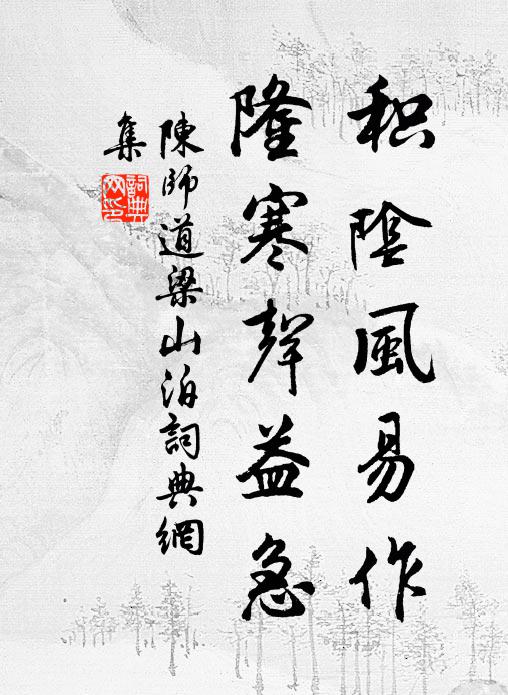 积陰風易作
隆寒聲益急
陳師道梁山泊詞典網
集
詞典
网印